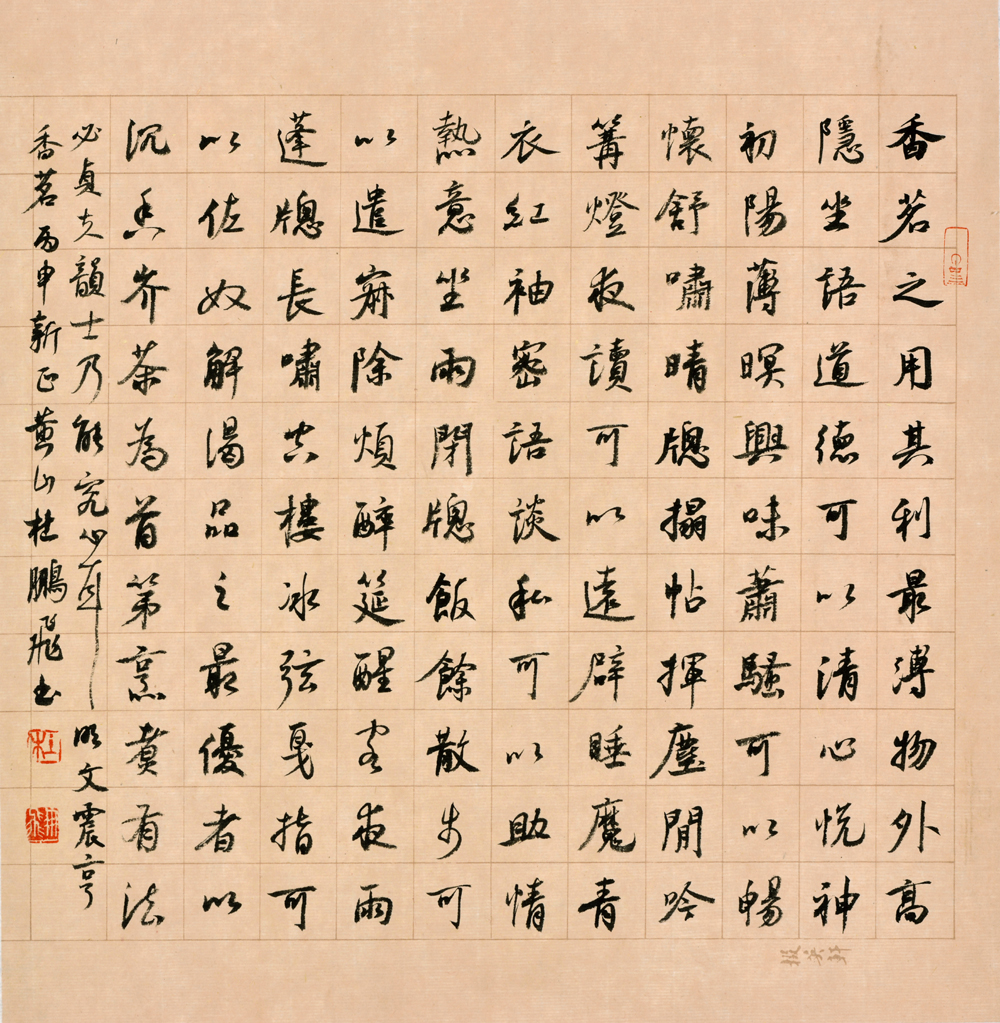 香茗之用其利最溥物外高
隱坐語道德可以清心悅神
初陽薄暝興味蕭騷可以暢
懷舒嘯晴牕搨帖揮塵閒吟
篝燈夜讀可以遠辟睡魔青
衣紅袖密語談私可以助情
熱意坐雨閉牕飯餘散步可
以遣寂除煩醉筵醒客夜雨
蓬牕長嘯空樓冰弦戛指可
以佐奴解渴品之最優者以
沉香岕茶為首第烹煑有法
必貞夫韻士乃能究心耳 明文震亨
香茗 丙申新正黃山杜鵬飛書